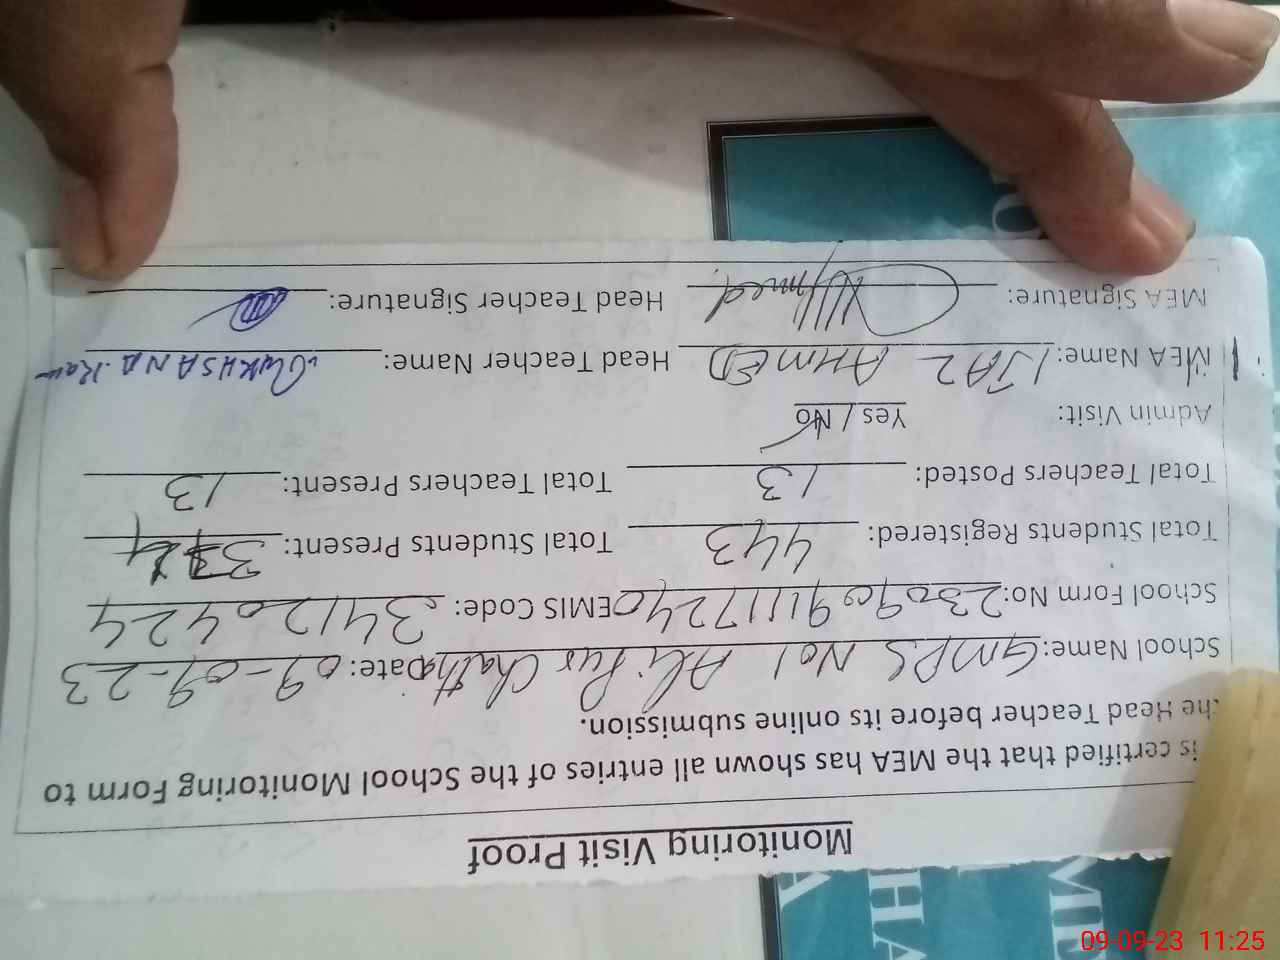 Monitoring Visit Proof
is certified that the MEA has shown all entries of the School Monitoring Form to
the Head Teacher before its online submission.
School Name: GMPS No 1 Ali Pur Chatha Date: 09-09-23
School Form No: 230909111724 EMIS Code: 34120424
Total Students Registered: 443 Total Students Present:
Total Teachers Posted: 13 Total Teachers Present: 13
Admin Visit: Yes / No
MEA Name: IJAZ AHMED Head Teacher Name: RUKHSANA
MEA Signature: Ahmed Head Teacher Signature:
HA
MD
A
09-09-23 11:25